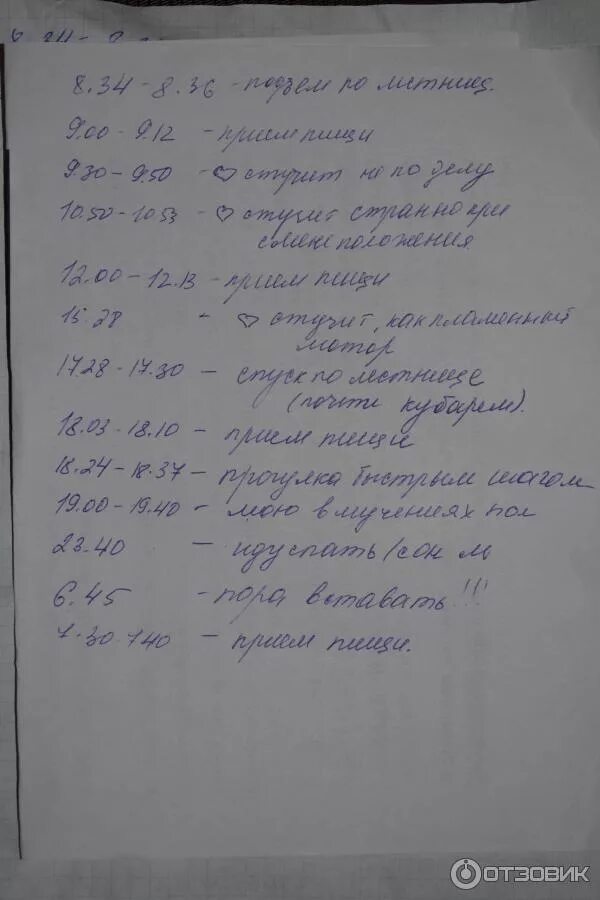 8.34 - 8.36 - подъем по лестниц.
9.00 - 9.12 - прием пищи
9.30 - 9.50 - ♡ стучит не по делу
10.50 - 10.53 - ♡ стучит странно при
смене положения
12.00 - 12.13 - прием пищи
15.28 - ♡ стучит, как пламенный
мотор
17.28 - 17.30 - спуск по лестнице
(почти кубарем).
18.03 - 18.10 - прием пищи
18.24 - 18.37 - прогулка быстрым шагом
19.00 - 19.40 - мою в мучениях пол
23.40 - иду спать/сон
6.45 - пора вставать!!!
7.30 7.40 - прием пищи.
ОТЗОВИК